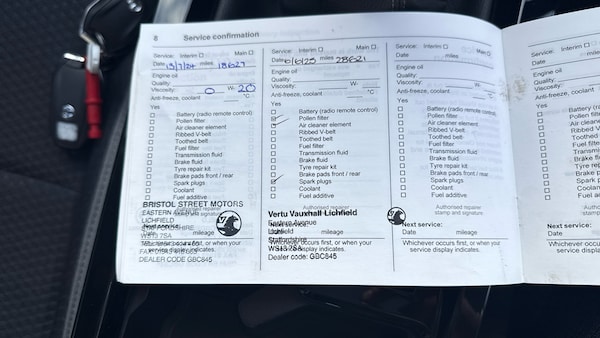 8 Service confirmation
Service: Interim Main
Date 13/7/24 miles 18627
Engine oil
Quality:
Viscosity: 0 W- 20
Anti-freeze, coolant °C
Yes
Battery (radio remote control)
Pollen filter
Air cleaner element
Ribbed V-belt
Tooth belt
Fuel filter
Transmission fluid
Brake fluid
Tyre repair kit
Brake pads front / rear
Spark plugs
Coolant
Fuel additive
Authorised repairer
stamp and signature
BRISTOL STREET MOTORS
EASTERN AVENUE
LICHFIELD
STAFFORDSHIRE
WS13 7SA
Next service:
Date mileage
Whichever occurs first, or when your
service display indicates.
DEALER CODE GBC845
Service: Interim Main
Date 6/6/25 miles 28621
Engine oil
Quality:
Viscosity: W-
Anti-freeze, coolant °C
Yes
Battery (radio remote control)
Pollen filter
Air cleaner element
Ribbed V-belt
Tooth belt
Fuel filter
Transmission fluid
Brake fluid
Tyre repair kit
Brake pads front / rear
Spark plugs
Coolant
Fuel additive
Authorised repairer
stamp and signature
Vertu Vauxhall Lichfield
Eastern Avenue
Lichfield
Staffordshire
WS13 7SA
Next service:
Date mileage
Whichever occurs first, or when your
service display indicates.
Dealer code: GBC845
Service: Interim Main
Date miles
Engine oil
Quality:
Viscosity: W-
Anti-freeze, coolant °C
Yes
Battery (radio remote control)
Pollen filter
Air cleaner element
Ribbed V-belt
Tooth belt
Fuel filter
Transmission fluid
Brake fluid
Tyre repair kit
Brake pads front / rear
Spark plugs
Coolant
Fuel additive
Authorised repairer
stamp and signature
Next service:
Date mileage
Whichever occurs first, or when your
service display indicates.
Service: Interim
Date
Engine oil
Quality:
Viscosity:
Anti-freeze, coolant
Yes
Next service:
Date
Whichever occurs
service display